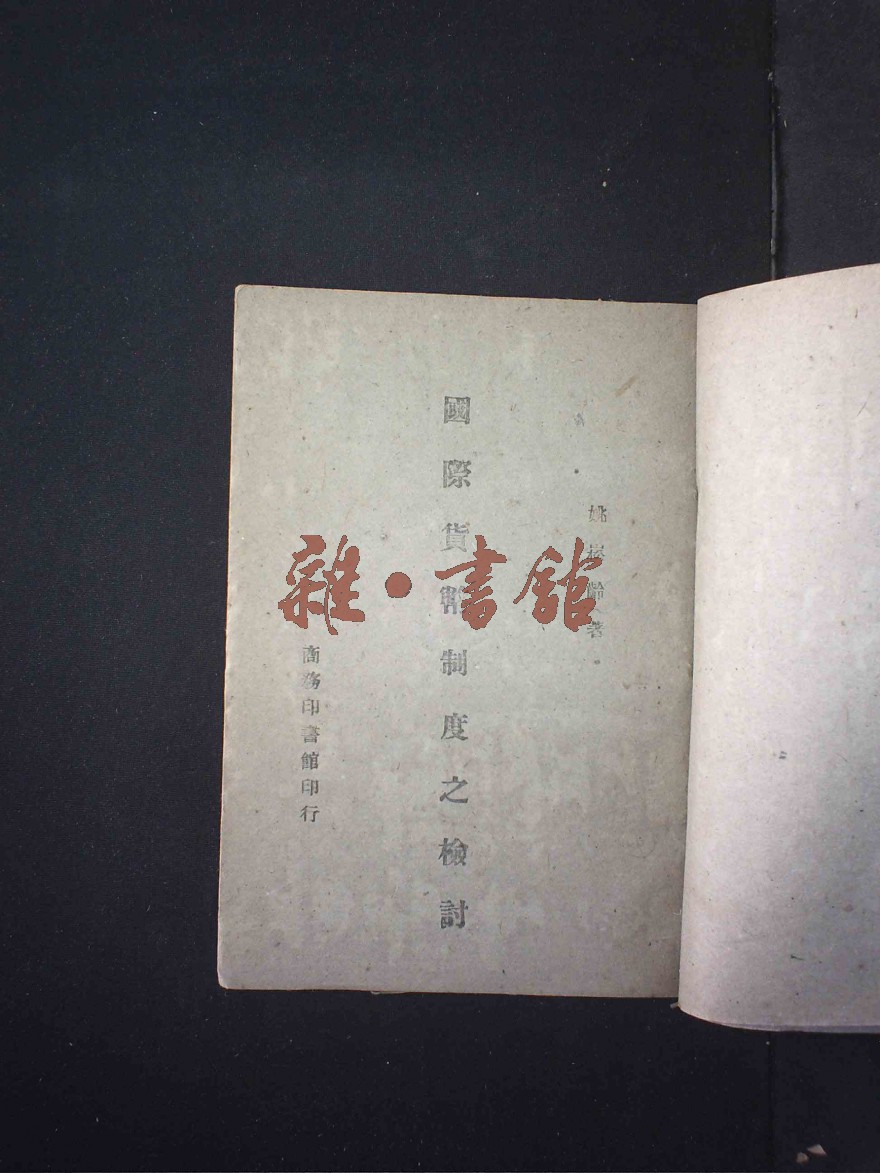 姚崧齡著
國際貨幣制度之檢討
商務印書館印行
雜·書館